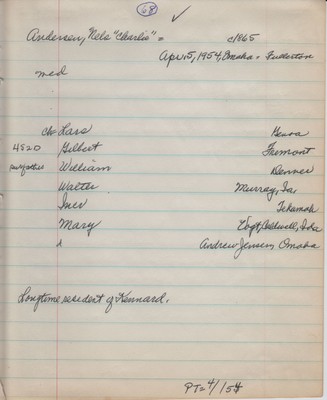 68 ✓
Andersen, Nels "Charlie" = c1865
Apr. 5, 1954, Omaha = Fullerton
med
ch: Lars Genoa
4520 Gilbert Fremont
William Denver
Walter Murray, Ia,
Iner Tekamah
Mary Vogt, Caldwell, Ida
Andrew Jensen Omaha
Longtime resident of Kennard.
PT = 4/ /54